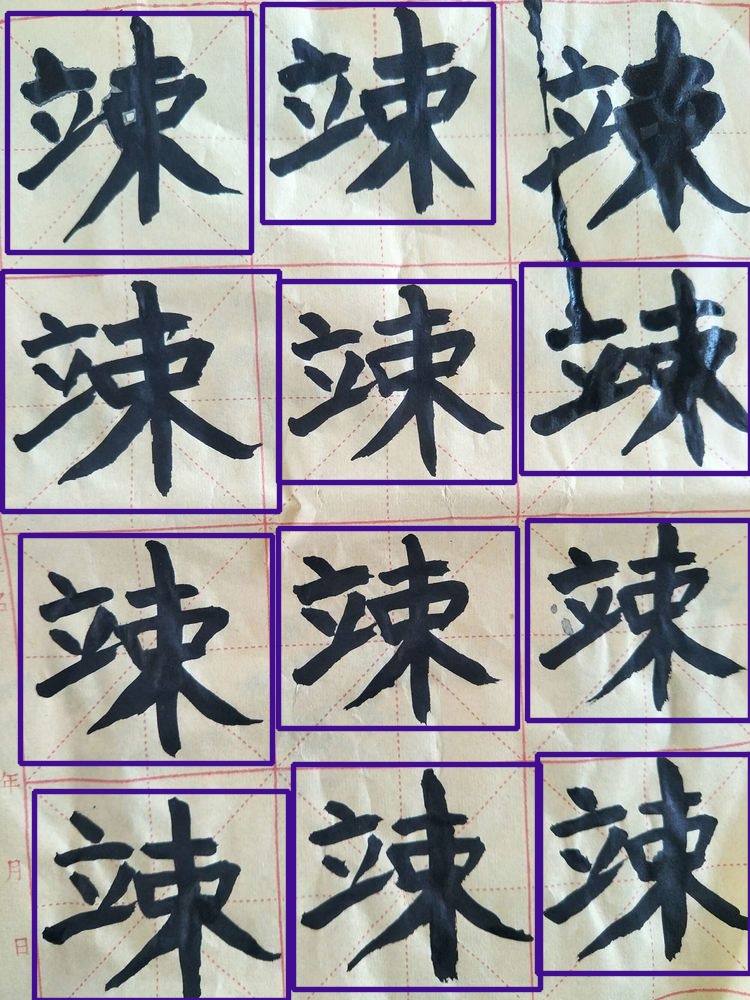 竦竦竦
竦竦竦
竦竦竦
竦竦竦
年
月
日